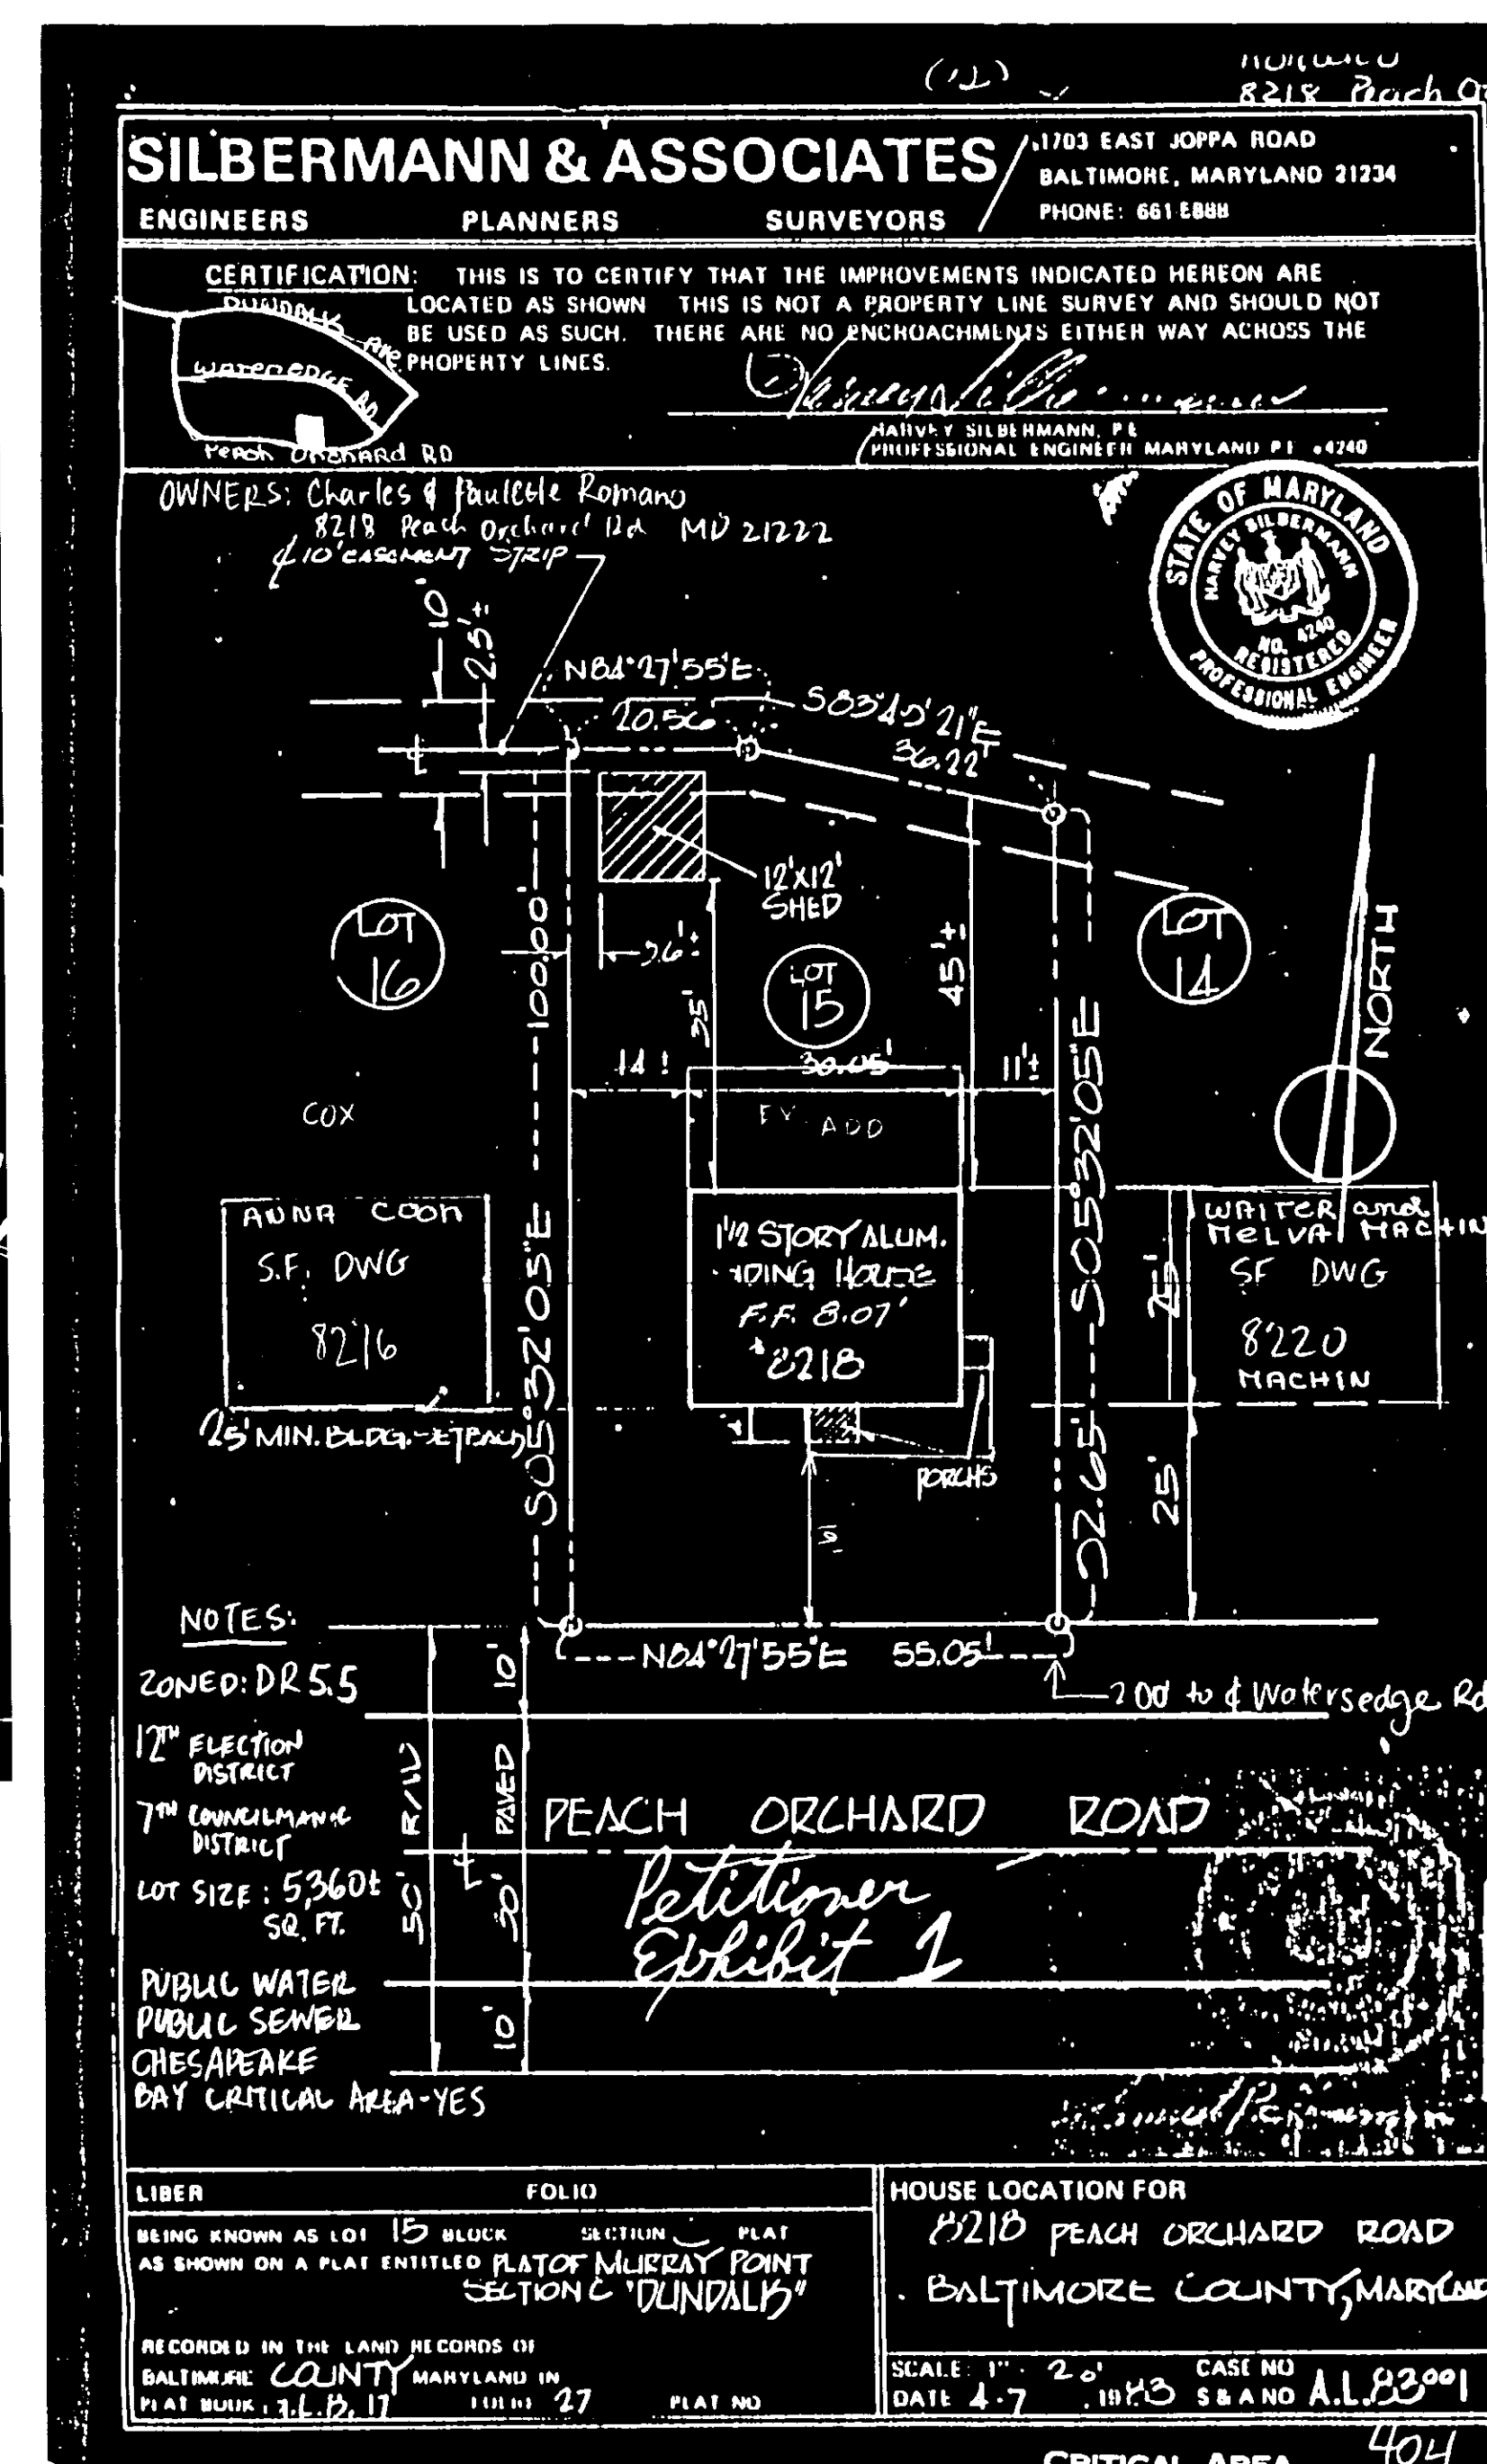 (12)
8218 Peach
SILBERMANN & ASSOCIATES
ENGINEERS PLANNERS SURVEYORS
1703 EAST JOPPA ROAD
BALTIMORE, MARYLAND 21234
PHONE: 661
CERTIFICATION: THIS IS TO CERTIFY THAT THE IMPROVEMENTS INDICATED HEREON ARE
LOCATED AS SHOWN THIS IS NOT A PROPERTY LINE SURVEY AND SHOULD NOT
BE USED AS SUCH. THERE ARE NO ENCROACHMENTS EITHER WAY ACROSS THE
PROPERTY LINES.
DUNDALK AVE
WATEREDGE RD
Peach Orchard RD
HARVEY SILBERMANN, PE
PROFESSIONAL ENGINEER MARYLAND PE 4240
OWNERS: Charles & Romano
8218 Peach Orchard Rd MD 21222
℄ 10' EASEMENT STRIP
STATE OF MARYLAND
HARVEY SILBERMANN
NO. 4240
REGISTERED
PROFESSIONAL ENGINEER
10'
2.5'±
N84°27'55"E
20.56
36.22'
12'X12'
SHED
LOT
16
LOT
15
LOT
14
100.00'
35'
45'±
14
30.05'
11'±
NORTH
COX
ADD
ANNA COON
S.F. DWG
8216
1½ STORY ALUM.
HOUSE
F.F. 8.07'
8218
WALTER and
MELVA MACHIN
SF DWG
8220
MACHIN
S05°32'05"E
S05°32'05"E
25'
25' MIN. BLDG. SETBACK
PORCHS
25'
NOTES:
N84°27'55"E 55.05'
200' to ℄ Watersedge Rd
ZONED: DR 5.5
12TH ELECTION
DISTRICT
7TH COUNCILMANIC
DISTRICT
LOT SIZE: 5,360±
SQ. FT.
PUBLIC WATER
PUBLIC SEWER
CHESAPEAKE
BAY CRITICAL AREA-YES
50' R/W
10'
30' PAVED
10'
PEACH ORCHARD ROAD
Petitioner
Exhibit 1
LIBER FOLIO
BEING KNOWN AS LOT 15 BLOCK SECTION C PLAT
AS SHOWN ON A PLAT ENTITLED PLAT OF MURRAY POINT
SECTION C "DUNDALK"
RECORDED IN THE LAND RECORDS OF
BALTIMORE COUNTY MARYLAND IN
PLAT BOOK 17 FOLIO 27 PLAT NO
HOUSE LOCATION FOR
8218 PEACH ORCHARD ROAD
BALTIMORE COUNTY, MARYLAND
SCALE: 1" 20'
DATE 4-7 1983
CASE NO
S & A NO A.L.83001
404
CRITICAL AREA